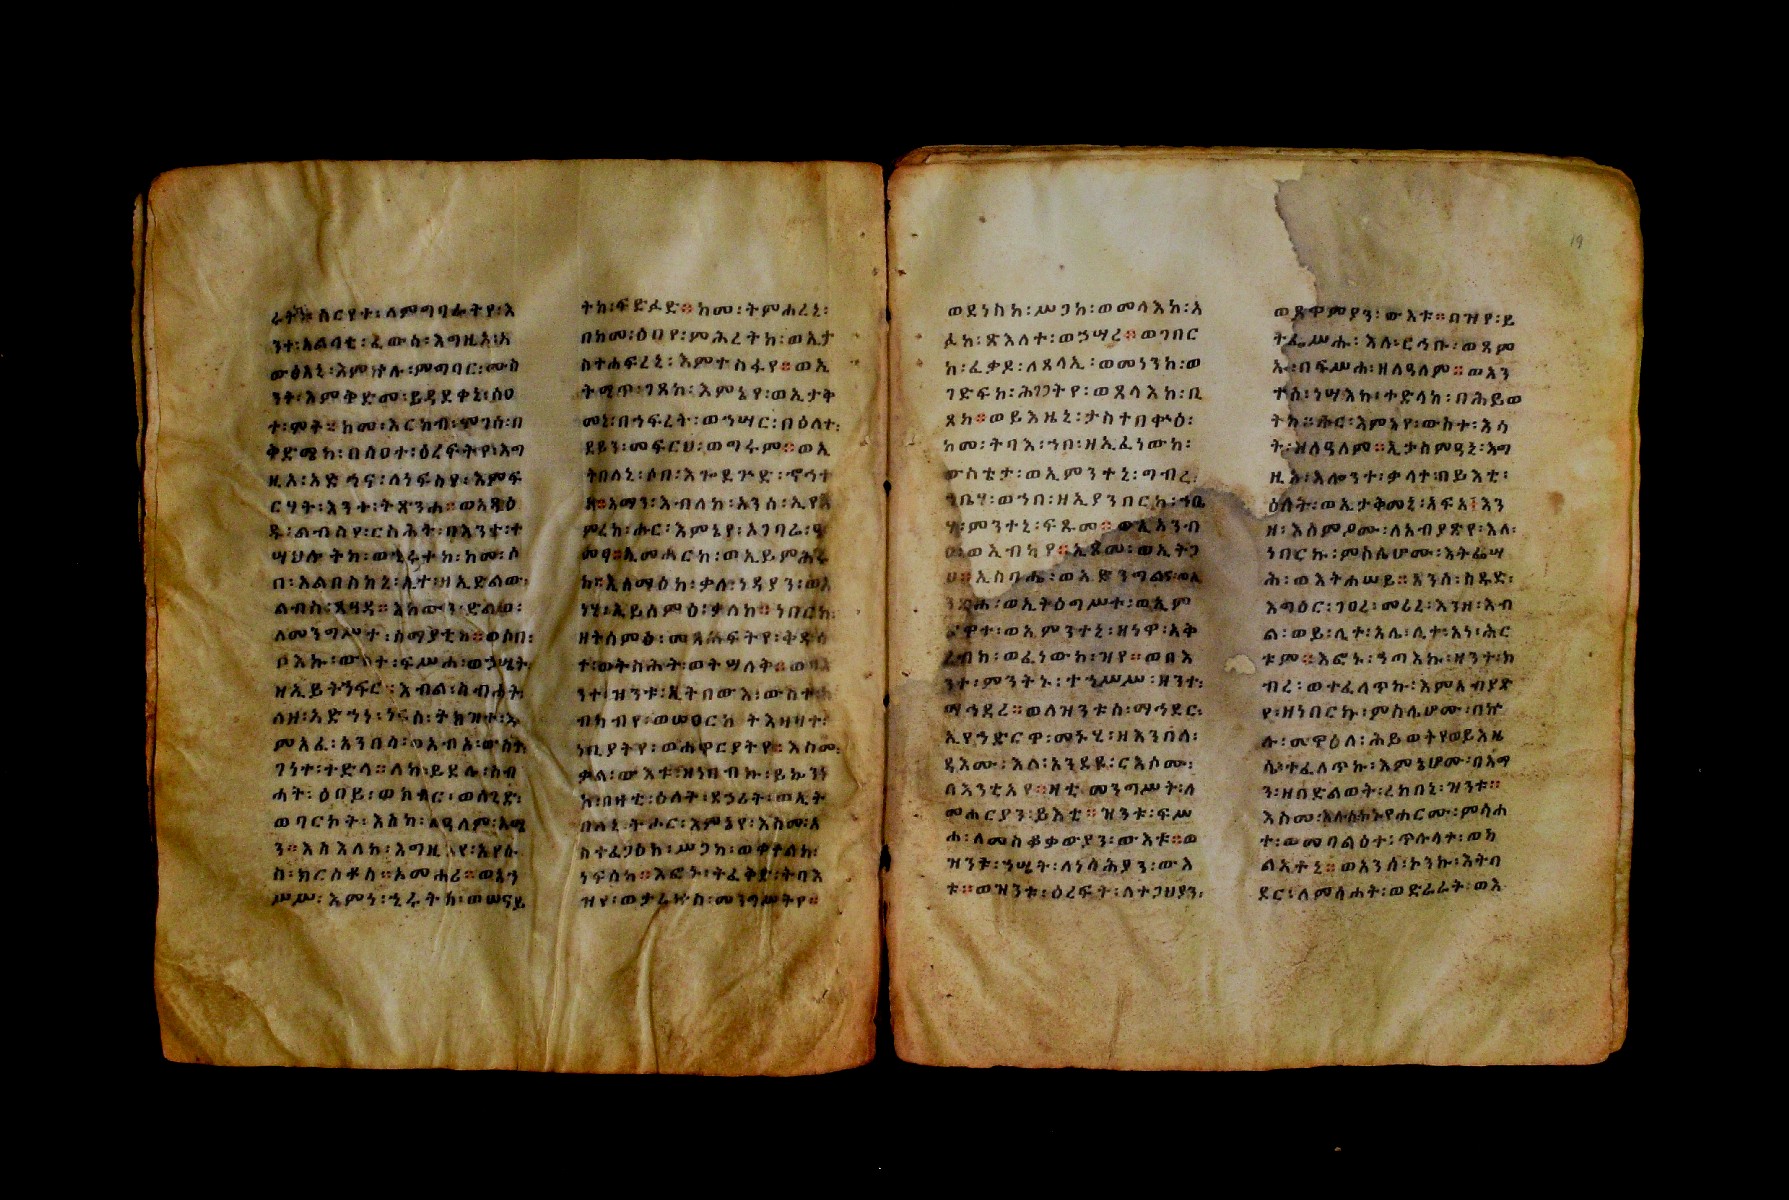 ራትከ። ስርየተ፡ ለምግባራትየ፡ እ
ንተ፡ አልባቲ፡ ፈውስ፡ እግዚአ፡ አ
ውፅአኒ፡ እምኵሉ፡ ምግባር፡ ሙስ
ንት፡ እምቅድመ፡ ይዳደቀኒ፡ ሰዐ
ተ፡ ሞት። ከመ፡ እርከብ፡ ሞገሰ፡ በ
ቅድሜከ፡ በሰዐተ፡ ዕረፍትየ፡ እግ
ዚአ፡ አድኅና፡ ለነፍስየ፡ እምፍ
ርሃት፡ እንተ፡ ትጸንሐ። ወአጻዕ
ዱ፡ ልብስየ፡ ርስሕት፡ በእንተ፡ ተ
ሣህሉትከ፡ ወኂሩተከ፡ ከመ፡ ሶ
በ፡ እልበስከኒ፡ ሊተ፡ ዘኢድልው፡
ልብስ፡ ጸዓዳ። እከውን፡ ድልወ፡
ለመንግሥተ፡ ሰማያቲከ። ወሶበ፡
ቦእኩ፡ ውስተ፡ ፍሥሐ፡ ወኃሤት፡
ዘኢይትኀፍር። እብል፡ ስብሐት፡
ለዘ፡ አድኀነ፡ ነፍሰ፡ ትክዝተ፡ እ
ምአፈ፡ አንበሳ፡ ወአብአ፡ ውስተ፡
ገነተ፡ ተድላ። ለከ፡ ይደሉ፡ ስብ
ሐት፡ ዕበይ፡ ወክብር፡ ወስጊድ፡
ወባርኮት፡ እስከ፡ ለዓለም፡ አሜ
ን። እስእለከ፡ እግዚእየ፡ ኢየሱ
ስ፡ ክርስቶስ። አመሐሪ። ወእኀ
ሥሥ፡ እምነ፡ ኂሩትከ፡ ወሠናይ
ትከ፡ ፍድፉድ። ከመ፡ ትምሐረኒ፡
በከመ፡ ዕበየ፡ ምሕረትከ፡ ወኢታ
ስተሐፍረኒ፡ እምተስፋየ። ወኢ
ትሚጥ፡ ገጸከ፡ እምኔየ፡ ወኢታቅ
መኒ፡ በኀፍረት፡ ወኀሣር፡ በዕለተ፡
ደይን፡ መፍርህ፡ ወግሩም። ወኢ
ትበለኒ፡ ሶበ፡ እጐደጕድ፡ ኆኅተ
ከ። አማን፡ እብለከ፡ አንሰ፡ ኢየአ
ምረከ፡ ሑር፡ እምኔየ፡ አገባሬ፡ ዓ
መፃ። ኢመሐርከ፡ ወኢይምሕሩ
ከ። ኢሰማዕከ፡ ቃለ፡ ነዳያን፡ ወአ
ነሂ፡ ኢይሰምዕ፡ ቃለከ። ነበርከ፡
ዘትሰምዕ፡ መጻሕፍትየ፡ ቅዱሳ
ተ፡ ወትስሕት፡ ወትሣለት።
ንተ፡ ዝንቱ፡ ኢትበውእ፡ ውስተ፡
ብከብየ፡ ወሠዐርከ ትእዛዛተ፡
ነቢያትየ፡ ወሐዋርያትየ። እስመ፡
ቃል፡ ውእቱ፡ ዝነበብኩ፡ ይኴንነ
ከ፡ በዛቲ፡ ዕለት፡ ደኃሪት፡ ወኢት
በለኒ ትሑር፡ እምኔየ፡ እስመ፡ አ
ስተፈጋዕከ፡ ሥጋከ፡ ወቀተልከ፡
ነፍሰከ። እፎኑ፡ ትፈቅድ፡ ትባእ
ዝየ፡ ወታሬኵስ፡ መንግሥትየ።
ወደነስከ፡ ሥጋከ፡ ወመላእከ፡ አ
ፉከ፡ ጽእለተ፡ ወኃሣረ። ወገበር
ከ፡ ፈቃደ፡ ለጸላኢ፡ ወመነንከ፡ ወ
ገድፍከ፡ ሕገጋትየ፡ ወጸላእከ፡ ቢ
ጸከ። ወይእዜኒ፡ ታስተበቍዕ፡
ከመ፡ ትባእ፡ ኀበ፡ ዘኢፈነውከ፡
ውስቴታ፡ ወኢምንተኒ፡ ግብረ፡
ኀቤሃ፡ ወኀበ፡ ዘኢያንበርከ፡ ኀቤ
ሃ፡ ምንተኒ፡ ፍጹመ። ወኢአንብ
ዐ፡ ወኢብካየ። ኢጾመ፡ ወኢትጋ
ሀ። ኢስባሔ፡ ወኢድንግልና፡ ወኢ
ንጽሐ፡ ወኢትዕግሥተ፡ ወኢም
ጽዋተ፡ ወኢምንተኒ፡ ዘነዋ፡ አቅ
ረብከ፡ ወፈነውከ፡ ዝየ። ወበእ
ንተ፡ ምንትኑ፡ ተኀሥሥ፡ ዘንተ፡
ማኅደረ። ወለዝንቱሰ፡ ማኅደር፡
ኢየኀድርዋ፡ መኑሂ፡ ዘእንበለ፡
ዳእሙ፡ እለ፡ አንደዩ፡ ርእሶሙ፡
በእንቲአየ። ዛቲ መንግሥት፡ ለ
መሐርያን፡ ይእቲ። ዝንቱ፡ ፍሥ
ሐ፡ ለመስቆቃውያን፡ ውእቱ። ወ
ዝንቱ፡ ኀሤት፡ ለነሳሕያን፡ ውእ
ቱ። ወዝንቱ፡ ዕረፍት፡ ለተጋህያን፡
ወጸዋምያን፡ ውእቱ። በዝየ፡ ይ
ትፌሥሑ፡ እለ፡ ርኅቡ፡ ወጸም
ኡ፡ በፍሥሐ፡ ዘለዓለም። ወአን
ተሰ፡ ነሣእከ፡ ተድላከ፡ በሕይወ
ትከ። ሑር፡ እምኔየ፡ ውስተ፡ እሳ
ት፡ ዘለዓለም። ኢታስምዓኒ፡ እግ
ዚአ፡ እሎንተ፡ ቃላተ፡ በይእቲ፡
ዕለት፡ ወኢታቅመኒ፡ አፍአ፤ እን
ዘ፡ እስምዖሙ፡ ለአብያጽየ፡ እለ፡
ነበርኩ፡ ምስሌሆሙ፡ እትፌሣ
ሕ፡ ወእትሐሠይ። አንሰ፡ ስዱድ፡
እግዕር፡ ገዐረ፡ መሪረ፡ እንዘ፡ እብ
ል፡ ወይ፡ ሊተ፡ አሌ፡ ሊተ፡ አነ፡ ሕር
ቱም። እፎኑ፡ ኀጣእኩ፡ ዘንተ፡ ክ
ብረ፡ ወተፈለጥኩ፡ እምአብያጽ
የ፡ ዘነበርኩ፡ ምስሌሆሙ፡ በኵ
ሉ፡ መዋዕለ፡ ሕይወትየ ወይእዜ
ሰ፡ ተፈለጥኩ፡ እምኔሆሙ፡ በአማ
ን፡ ዘበድልወት፡ ረከበኒ፡ ዝንቱ።
እስመ፡ እሉሰ፡ ኮኑ የሐርሙ፡ ምሳሐ
ተ፡ ወመባልዕተ፡ ጥሉላተ፡ ወካ
ልኣተኒ። ወአንሰ፡ ኮንኩ፡ እትባ
ደር፡ ለምሳሐት፡ ወድራራት፡ ወእ